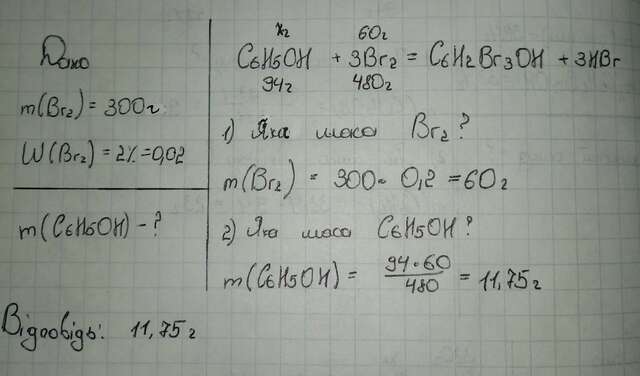 Дано
m(Br2) = 300г
W(Br2) = 2% = 0,02
m(C6H5OH) - ?
x г 60г
C6H5OH + 3Br2 = C6H2Br3OH + 3HBr
94г 480г
1) Яка маса Br2?
m(Br2) = 300 • 0,2 = 60г
2) Яка маса C6H5OH?
m(C6H5OH) = 94•60/480 = 11,75г
Відповідь: 11,75г